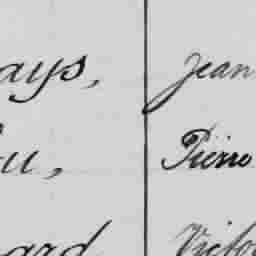 ays, Jean
u, Pierre
ard Victo